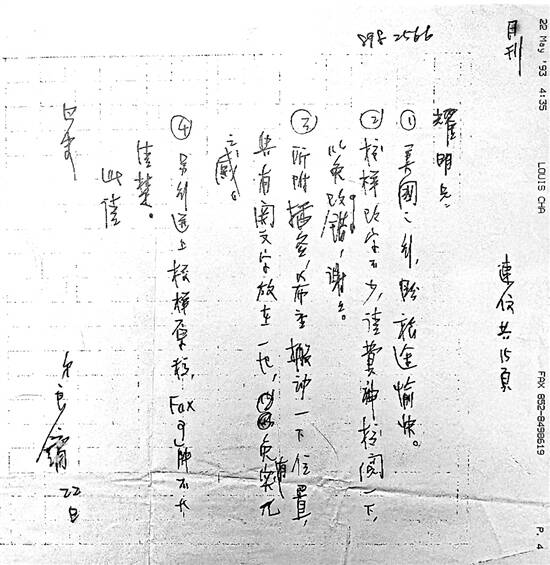 22 May '93 4:35 LOUIS CHA FAX 852-8498619 P. 4
898 2566
月刊
連 共15頁
耀明兄:
① 美國之行,盼旅途愉快。
② 校樣改字不少,請費神校閱一下,
以免改錯,謝謝。
③ 所附插 ,希 搬動一下位置,
與有關文字放在一起,以免有突兀
之感。
④ 另外送上校樣原稿,Fax可能不大
清楚。
此請
弟良鏞 22日